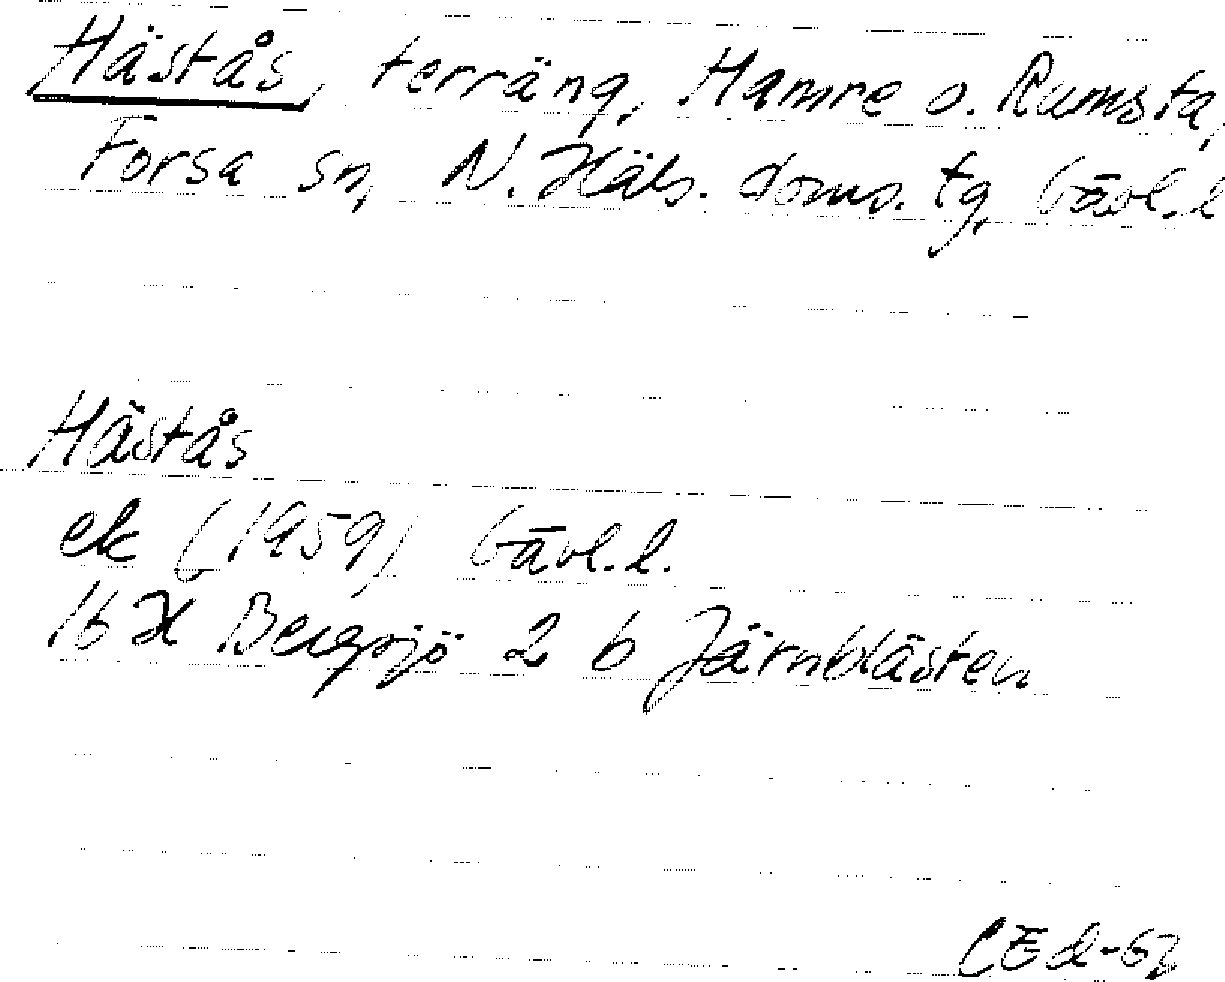 Hästås, terräng, Hamre o. Rumsta,
Forsa sn, N. Häls. doms. tg, Gävl. l
Hästås
ek (1959) Gävl. l.
16 H Bergsjö 2 b Järnblästen
CEd-62